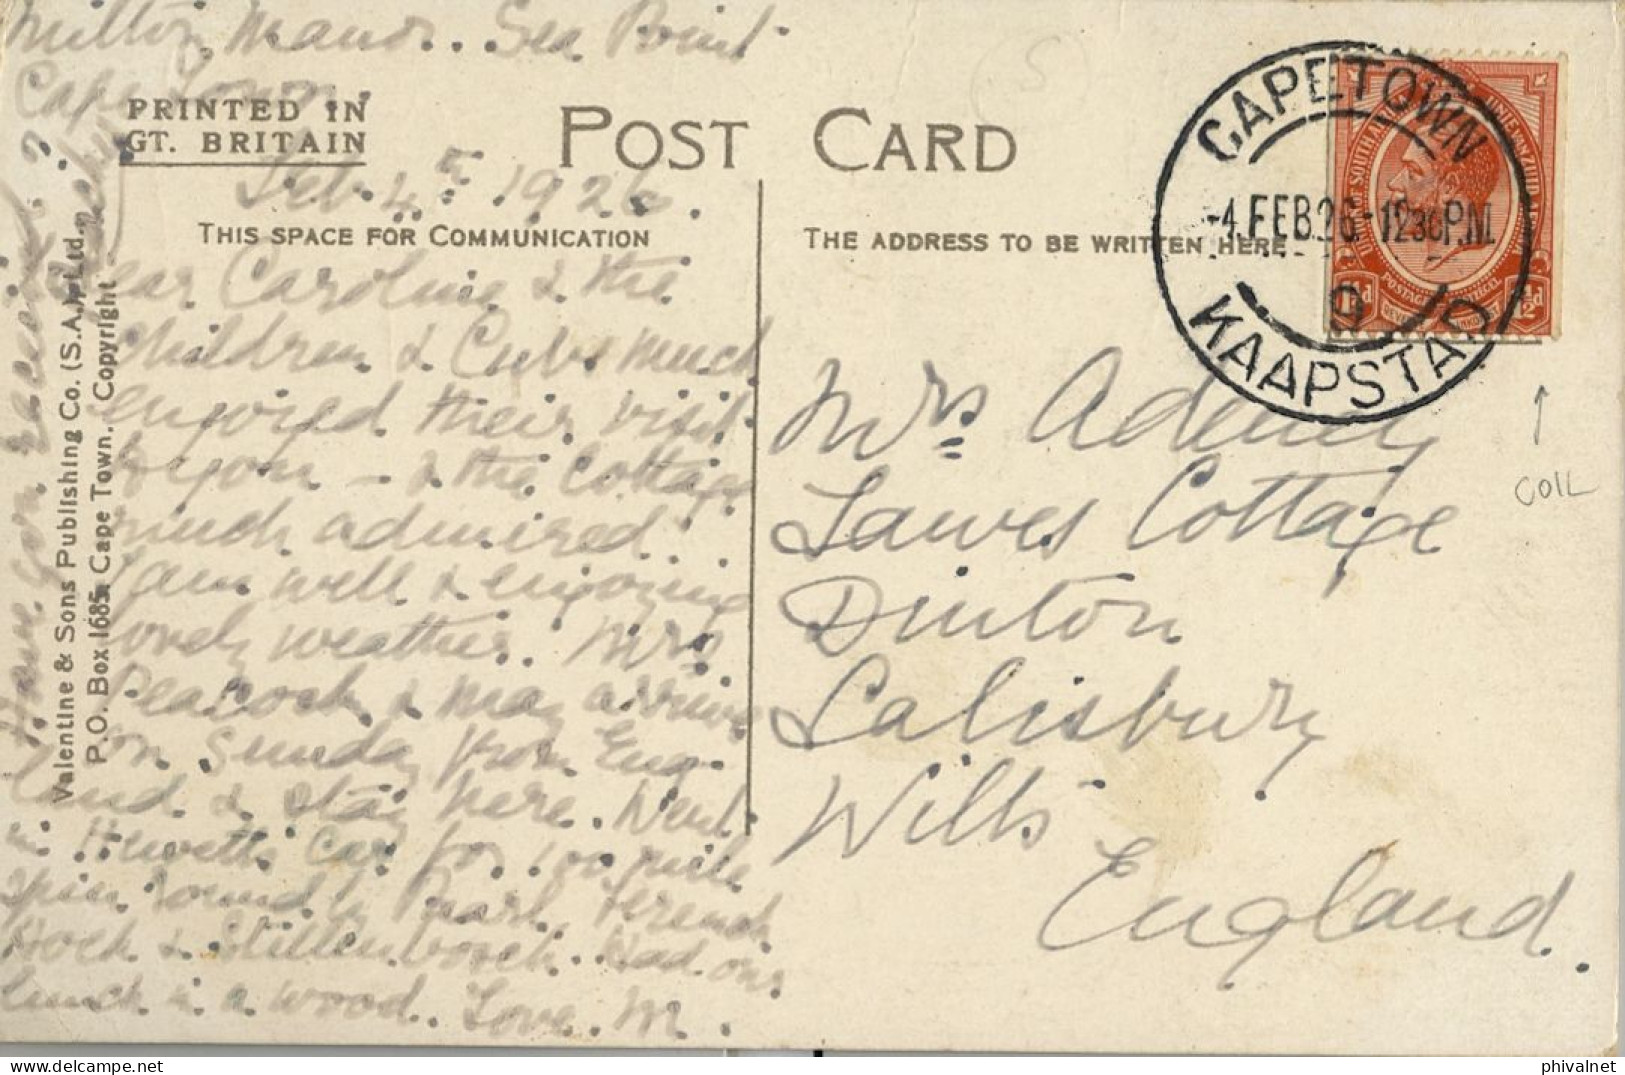 Milton Manor. Sea Point
Cape Town.
PRINTED IN
GT. BRITAIN
POST CARD
Feb. 4th 1926.
THIS SPACE FOR COMMUNICATION
THE ADDRESS TO BE WRITTEN HERE
Dear Caroline & the
children & Cubs much
enjoyed their visit
to you – & the cottage
much admired.
I am well & enjoying
lovely weather. Mrs
Peacock & May arrive
on Sunday from Eng-
land & stay here. Went
in Hewetts car for 100 mile
spin round by Paarl, French
Hoek & Stellenbosch. Had our
lunch in a wood. Love. M.
Have you received
Valentine & Sons Publishing Co. (S.A.) Ltd.,
P.O. Box 1685, Cape Town. Copyright
Mrs Adeney
Lawes Cottage
Dinton
Salisbury
Wilts
England.
CAPETOWN
-4.FEB.26.-1230P.M.
9
KAAPSTAD
COIL
(S)
phivalnet